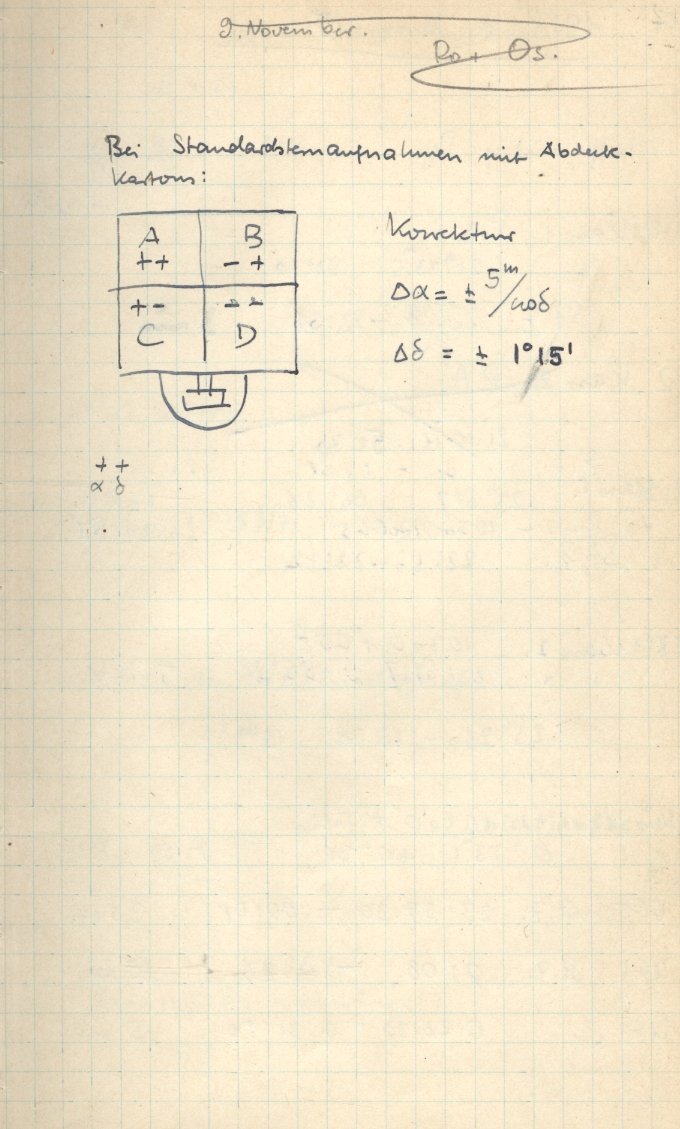 2. November.
Ro + Os.
Bei Standardsternaufnahmen mit Abdeck-
kartons:
A B
++ - +
+ - - -
C D
Korrektur
Δα = ± 5ᵐ/cosδ
Δδ = ± 1°15'
+ +
α δ